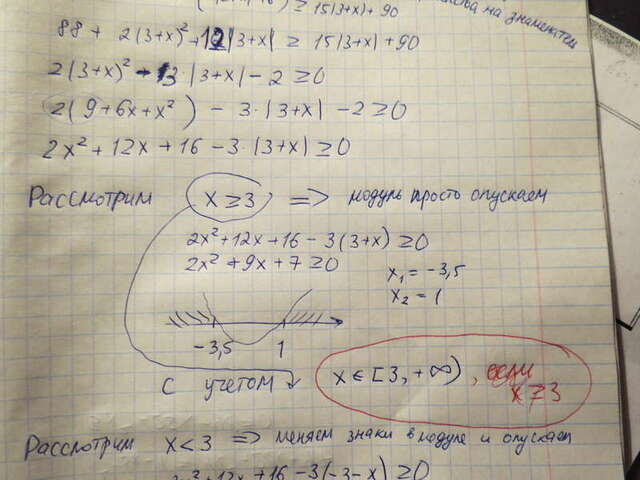 ≥ 15|3+x| + 90
на знаменатель
88 + 2(3+x)² + 12|3+x| ≥ 15|3+x| + 90
2(3+x)² - 3·|3+x| - 2 ≥ 0
2(9 + 6x + x²) - 3·|3+x| - 2 ≥ 0
2x² + 12x + 16 - 3·|3+x| ≥ 0
Рассмотрим x ≥ 3 => модуль просто опускаем
2x² + 12x + 16 - 3(3+x) ≥ 0
2x² + 9x + 7 ≥ 0
x₁ = -3,5
x₂ = 1
-3,5 1
с учетом x ∈ [3, +∞), если x ≥ 3
Рассмотрим x < 3 => меняем знаки в модуле и опускаем
+ 12x + 16 - 3(-3-x) ≥ 0